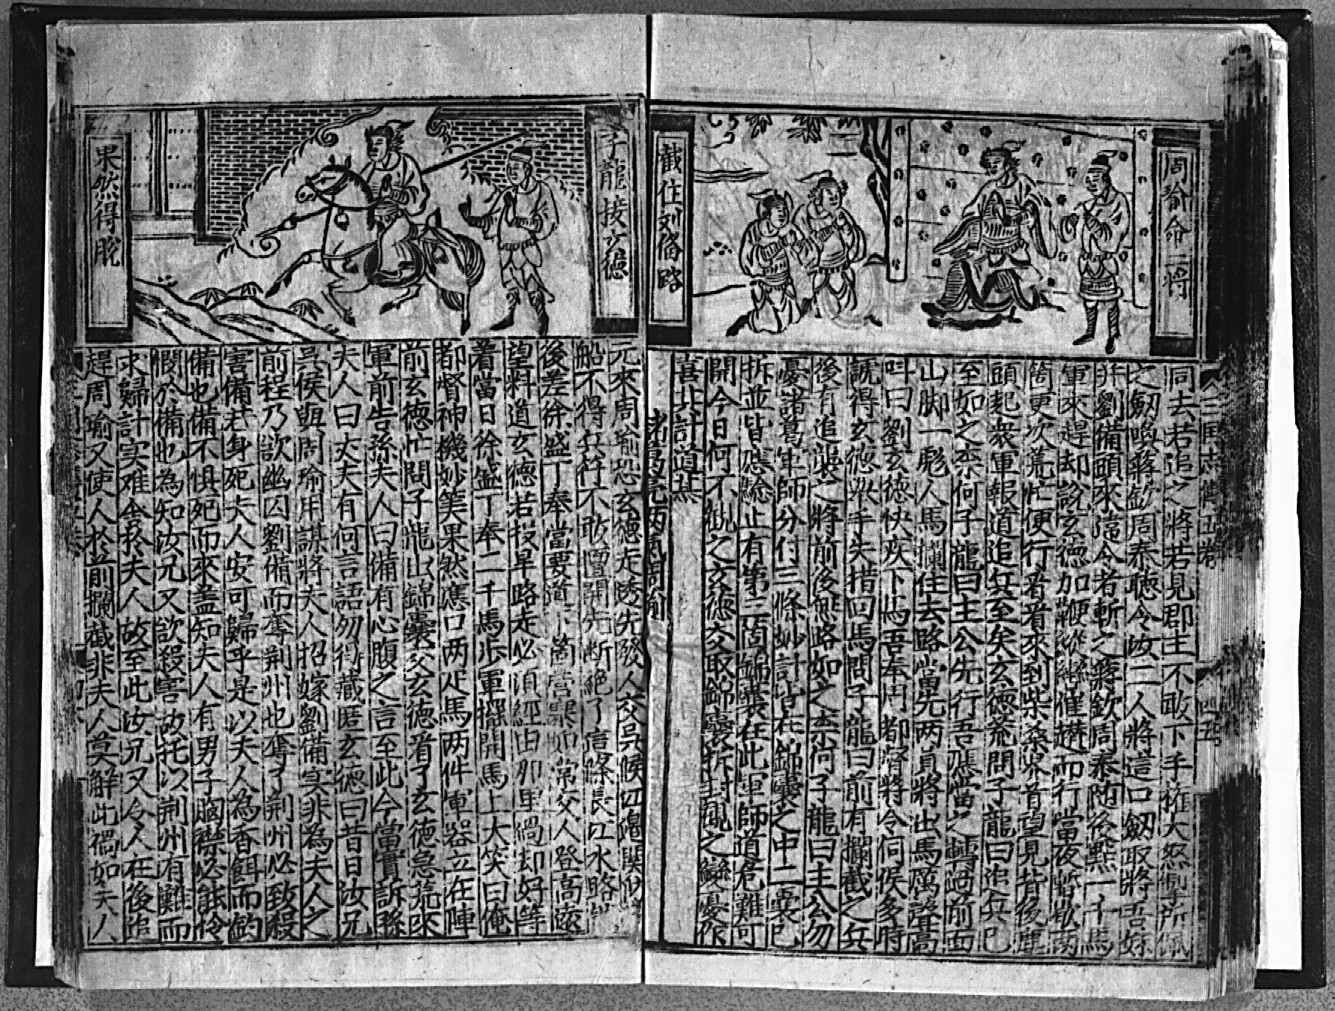 周瑜命二將
截住刘俻路
同去若追之將若見郡主不敢下手權大怒掣所佩
之劎喚蔣欽周泰聽令汝二人將這口劎取將吾妹
并劉備頭來違令者斬之蔣欽周泰随後點一千馬
軍來趕却說玄德加鞭縱轡催趲而行當夜暫歇两
箇更次慌忙便行看看來到柴桑界首望見背後塵
頭起衆軍報道追兵至矣玄德慌問子龍曰追兵已
至如之柰何子龍曰主公先行吾應當之轉過前面
山脚一彪人馬攔住去路當先两員將出馬厲聲高
呌曰劉玄德快疾下馬吾奉周都督將令伺候多時
諕得玄德措手失措囘馬問子龍曰前有攔截之兵
後有追襲之將前後無路如之柰何子龍曰主公勿
憂諸葛軍師分付三條妙計皆在錦囊之中二囊已
拆並皆應驗止有第三箇錦囊在此軍師道危難可
開今日何不觀之玄德交取錦囊拆封觀之變憂作
喜其計道甚
諸葛亮两氣周瑜
子龍接玄德
果然得脫
元來周瑜恐玄德走透先發人交吳候切唱関
船不得兵符不敢擅開先断絕了信隊長江水路
後差徐盛丁奉當要道下箇營寨如常交人登高遥
望料道玄德若投旱路走必須經由那里過却好等
着當日徐盛丁奉二千馬步軍擺開馬上大笑曰俺
都督神機妙筭果然應口两疋馬两件軍器立在陣
前玄德忙問子龍出錦囊交玄德看了玄德急慌來
軍前告孫夫人曰備有心腹之言至此今當實訴孫
夫人曰丈夫有何言語勿得藏匿玄德曰昔日汝兄
吳侯與周瑜用謀將夫人招嫁劉備實非為夫人之
前程乃欲幽囚劉備而奪荆州也奪了荆州必致殺
害備若身死夫人安可歸乎是以夫人為香餌而釣
備也備不惧死而來盖知夫人有男子胸襟必能怜
憫於備也為知汝兄又欲殺害故托以荆州有難而
求歸計实难舍於夫人故至此汝兄又令人在後追
趕周瑜又使人於前攔截非夫人莫解此禍如夫人